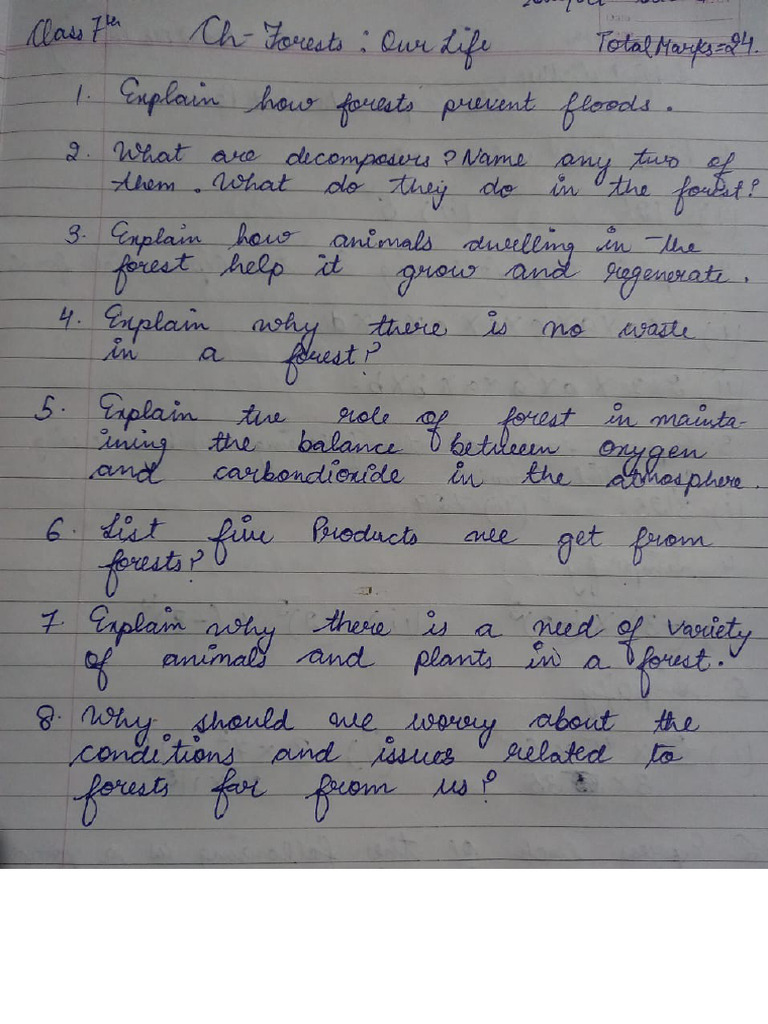 Class 7th Ch- Forests : Our Life Total Marks=24.
1. Explain how forests prevent floods.
2. What are decomposers? Name any two of
them. What do they do in the forest?
3. Explain how animals dwelling in the
forest help it grow and regenerate.
4. Explain why there is no waste
in a forest?
5. Explain the role of forest in mainta-
ining the balance between oxygen
and carbondioxide in the atmosphere.
6. List five Products we get from
forests?
7. Explain why there is a need of variety
of animals and plants in a forest.
8. Why should we worry about the
conditions and issues related to
forests far from us?